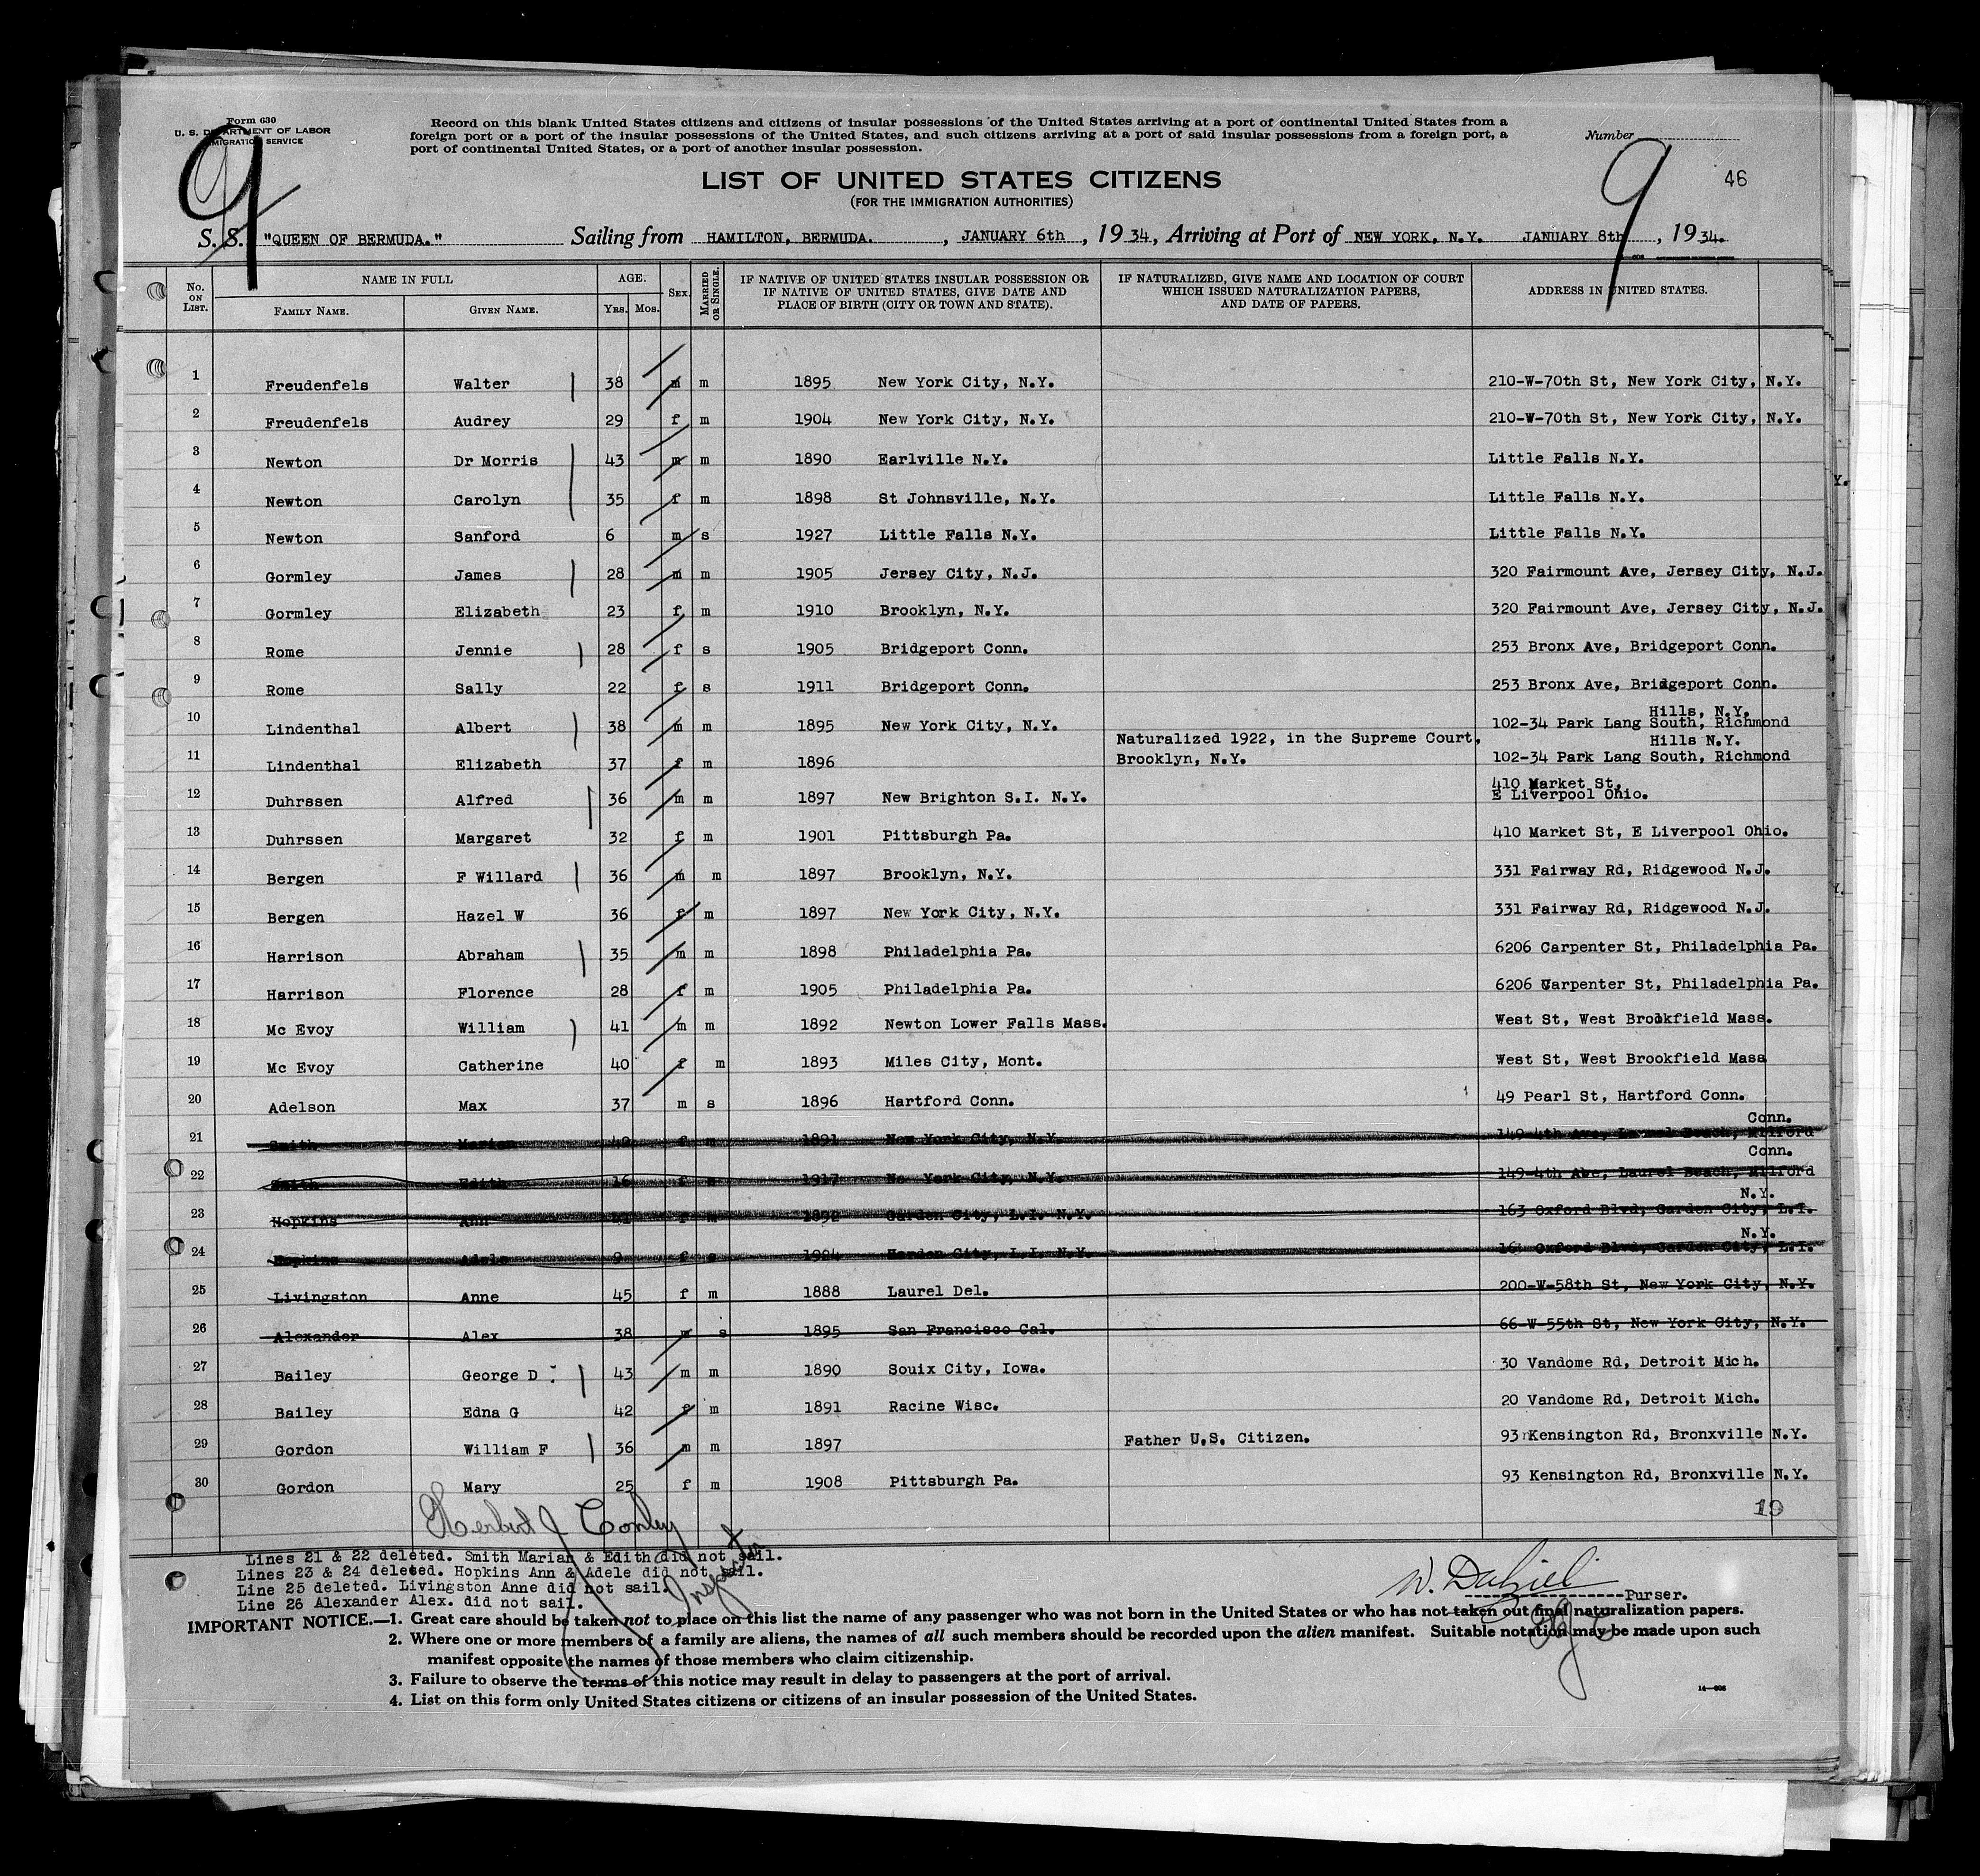 Form 630
U. S. DEPARTMENT OF LABOR
IMMIGRATION SERVICE
Record on this blank United States citizens and citizens of insular possessions of the United States arriving at a port of continental United States from a
foreign port or a port of the insular possessions of the United States, and such citizens arriving at a port of said insular possessions from a foreign port, a
port of continental United States, or a port of another insular possession.
Number
9
9
46
LIST OF UNITED STATES CITIZENS
(FOR THE IMMIGRATION AUTHORITIES)
S. S. "QUEEN OF BERMUDA." Sailing from HAMILTON, BERMUDA. , JANUARY 6th , 1934, Arriving at Port of NEW YORK, N.Y. JANUARY 8th , 1934.
No. ON LIST. NAME IN FULL FAMILY NAME. GIVEN NAME. AGE. YRS. MOS. SEX. MARRIED OR SINGLE. IF NATIVE OF UNITED STATES INSULAR POSSESSION OR IF NATIVE OF UNITED STATES, GIVE DATE AND PLACE OF BIRTH (CITY OR TOWN AND STATE). IF NATURALIZED, GIVE NAME AND LOCATION OF COURT WHICH ISSUED NATURALIZATION PAPERS, AND DATE OF PAPERS. ADDRESS IN UNITED STATES.
1 Freudenfels Walter 38 m m 1895 New York City, N.Y. 210-W-70th St, New York City, N.Y.
2 Freudenfels Audrey 29 f m 1904 New York City, N.Y. 210-W-70th St, New York City, N.Y.
3 Newton Dr Morris 43 m m 1890 Earlville N.Y. Little Falls N.Y.
4 Newton Carolyn 35 f m 1898 St Johnsville, N.Y. Little Falls N.Y.
5 Newton Sanford 6 m s 1927 Little Falls N.Y. Little Falls N.Y.
6 Gormley James 28 m m 1905 Jersey City, N.J. 320 Fairmount Ave, Jersey City, N.J.
7 Gormley Elizabeth 23 f m 1910 Brooklyn, N.Y. 320 Fairmount Ave, Jersey City, N.J.
8 Rome Jennie 28 f s 1905 Bridgeport Conn. 253 Bronx Ave, Bridgeport Conn.
9 Rome Sally 22 f s 1911 Bridgeport Conn. 253 Bronx Ave, Bridgeport Conn.
Hills, N.Y.
10 Lindenthal Albert 38 m m 1895 New York City, N.Y. 102-34 Park Lang South, Richmond
Naturalized 1922, in the Supreme Court, Hills N.Y.
11 Lindenthal Elizabeth 37 f m 1896 Brooklyn, N.Y. 102-34 Park Lang South, Richmond
410 Market St,
12 Duhrssen Alfred 36 m m 1897 New Brighton S.I. N.Y. E Liverpool Ohio.
13 Duhrssen Margaret 32 f m 1901 Pittsburgh Pa. 410 Market St, E Liverpool Ohio.
14 Bergen F Willard 36 m m 1897 Brooklyn, N.Y. 331 Fairway Rd, Ridgewood N.J.
15 Bergen Hazel W 36 f m 1897 New York City, N.Y. 331 Fairway Rd, Ridgewood N.J.
16 Harrison Abraham 35 m m 1898 Philadelphia Pa. 6206 Carpenter St, Philadelphia Pa.
17 Harrison Florence 28 f m 1905 Philadelphia Pa. 6206 Carpenter St, Philadelphia Pa.
18 Mc Evoy William 41 m m 1892 Newton Lower Falls Mass. West St, West Brookfield Mass.
19 Mc Evoy Catherine 40 f m 1893 Miles City, Mont. West St, West Brookfield Mass
20 Adelson Max 37 m s 1896 Hartford Conn. 49 Pearl St, Hartford Conn.
Conn.
21 Smith Marian 42 f m 1891 New York City, N.Y. 149-4th Ave, Laurel Beach, Milford
Conn.
22 Smith Edith 16 f s 1917 Ne York City, N.Y. 149-4th Ave, Laurel Beach, Milford
N.Y.
23 Hopkins Ann f m 1892 Garden City, L.I. N.Y. 163 Oxford Blvd, Garden City, L.I.
N.Y.
24 Hopkins Adele 9 f s 1924 Harden City, L.I. N.Y. 163 Oxford Blvd, Garden City, L.I.
25 Livingston Anne 45 f m 1888 Laurel Del. 200-W-58th St, New York City, N.Y.
26 Alexander Alex 38 m s 1895 San Francisco Cal. 66-W-55th St, New York City, N.Y.
27 Bailey George D 43 m m 1890 Souix City, Iowa. 30 Vandome Rd, Detroit Mich.
28 Bailey Edna G 42 f m 1891 Racine Wisc. 20 Vandome Rd, Detroit Mich.
29 Gordon William F 36 m m 1897 Father U.S. Citizen. 93 Kensington Rd, Bronxville N.Y.
30 Gordon Mary 25 f m 1908 Pittsburgh Pa. 93 Kensington Rd, Bronxville N.Y.
19
Herbert J Conley
Inspector
Lines 21 & 22 deleted. Smith Marian & Edith did not sail.
Lines 23 & 24 deleted. Hopkins Ann & Adele did not sail.
Line 25 deleted. Livingston Anne did not sail.
Line 26 Alexander Alex. did not sail.
W. Dalziel
Purser.
IMPORTANT NOTICE.—1. Great care should be taken not to place on this list the name of any passenger who was not born in the United States or who has not taken out final naturalization papers.
2. Where one or more members of a family are aliens, the names of all such members should be recorded upon the alien manifest. Suitable notation may be made upon such
manifest opposite the names of those members who claim citizenship.
3. Failure to observe the terms of this notice may result in delay to passengers at the port of arrival.
4. List on this form only United States citizens or citizens of an insular possession of the United States.